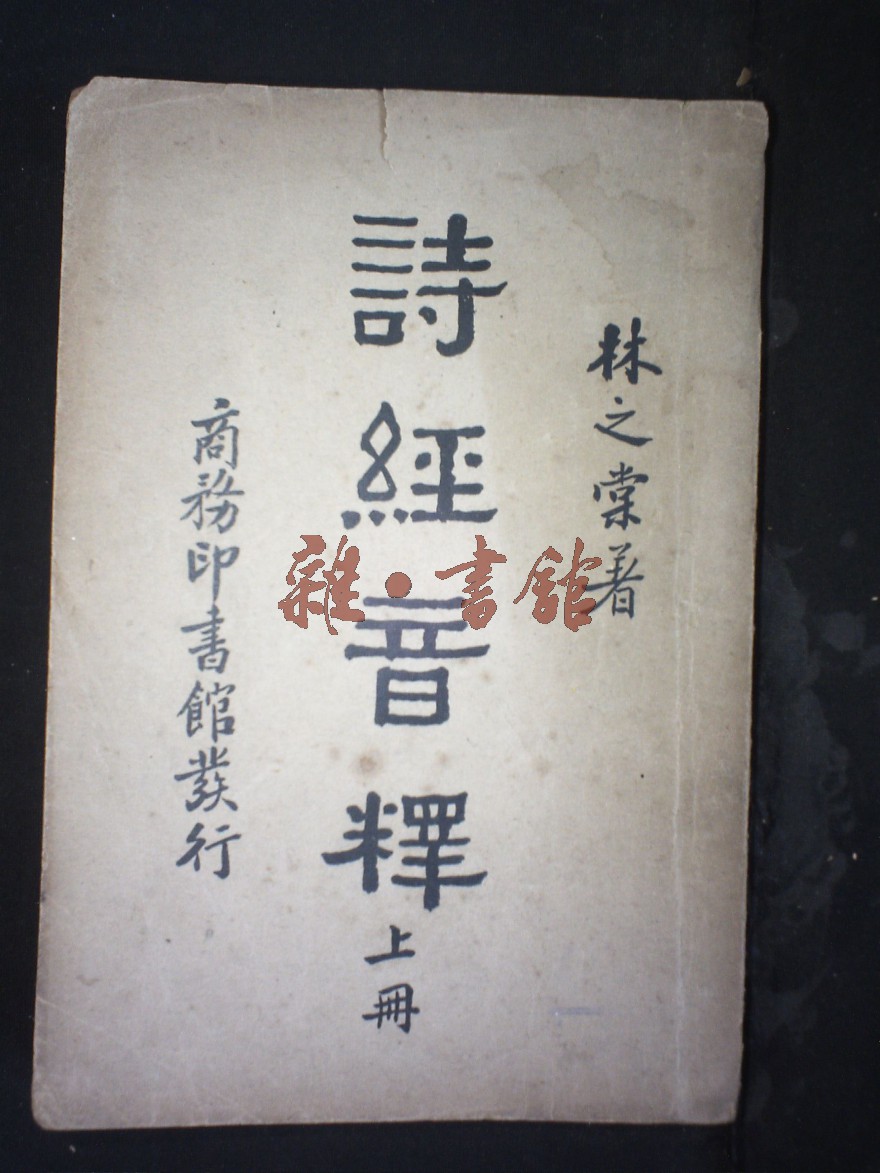 林之棠著
詩經音釋
上冊
商務印書館發行
雜·書館